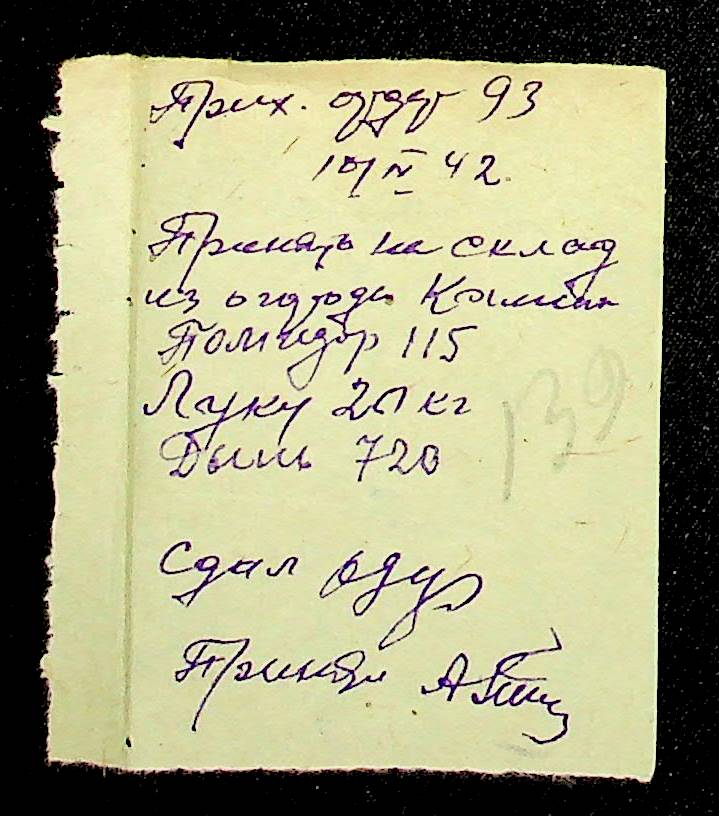 Прих. ордер 93
10/IV 42.
Принять на склад
из огорода
Помидор 115
Луку 20 кг
Дынь 720
139
Сдал
Принял